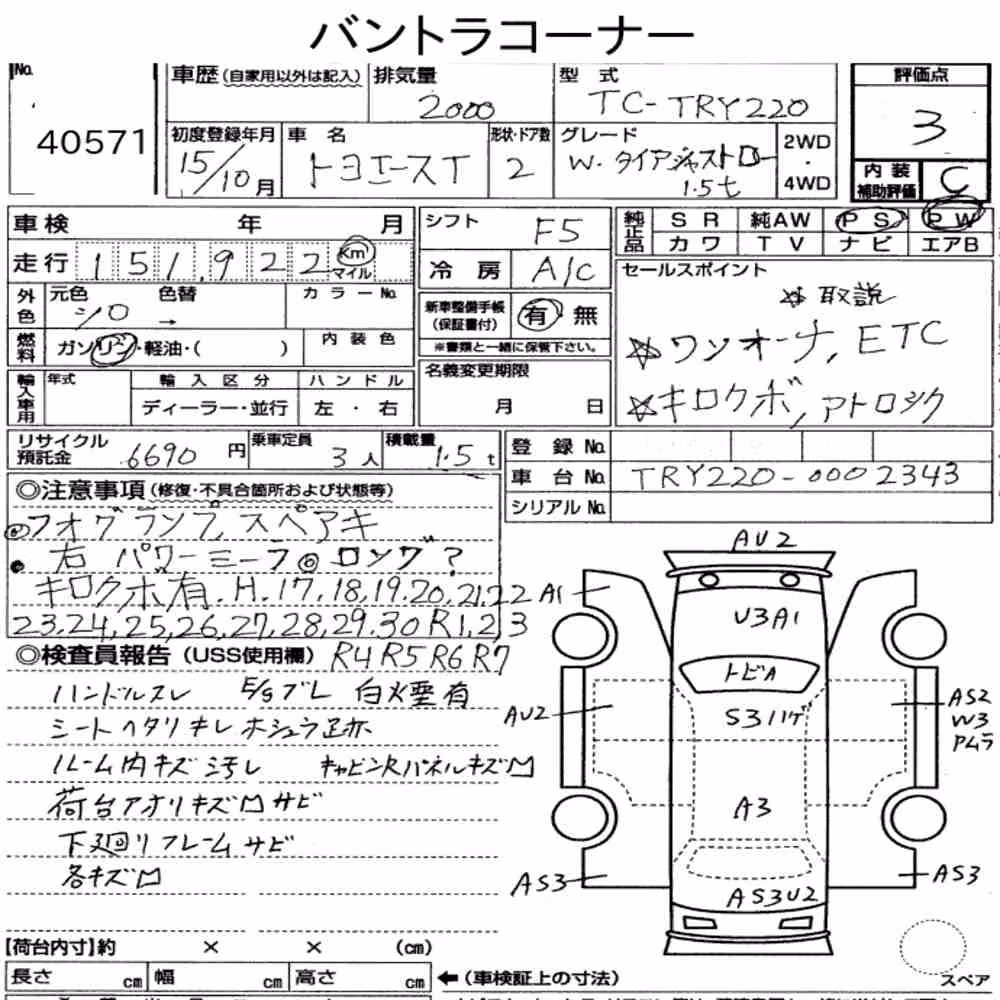 バントラコーナー
No. 40571
車歴 (自家用以外は記入)
排気量 2000
型式 TC-TRY220
評価点 3
内装補助評価 C
初度登録年月 15/10月
車名 トヨエースT
形状・ドア数 2
グレード W・タイアジャストロー 1.5t
2WD・4WD
車検 年 月
シフト F5
純正品 SR 純AW PS PW
カワ TV ナビ エアB
走行 151,922 Km マイル
冷房 A/C
セールスポイント
☆取説
☆ワンオーナ, ETC
☆キロクボ, アトロシク
外色 元色 シロ 色替 → カラーNo.
新車整備手帳(保証書付) 有 無
※書類と一緒に保管下さい。
燃料 ガソリン・軽油・( )
内装色
名義変更期限 月 日
輸入車用 年式 輸入区分 ハンドル
ディーラー・並行 左・右
リサイクル預託金 6690円
乗車定員 3人
積載量 1.5t
登録No.
車台No. TRY220-0002343
シリアルNo.
◎注意事項 (修復・不具合箇所および状態等)
◎フォグランプ, スペアキ
●右 パワーミーラ◎ロング?
キロクボ有. H.17,18,19.20,21,22
23,24,25,26,27,28,29.30 R1,2,3
R4 R5 R6 R7
◎検査員報告 (USS使用欄)
ハンドルスレ E/gブレ 白火煙有
シートヘタリキレ ホシュラ跡
ルーム内キズ汚レ キャビンRパネルキズ凹
荷台アオリキズ凹サビ
下廻リフレームサビ
各キズ凹
AU2
A1
U3A1
トビA
S3ハゲ
AU2
AS2
W3
Pムラ
A3
AS3
AS3
AS3U2
スペア
【荷台内寸】約 × × (cm)
長さ cm 幅 cm 高さ cm
←(車検証上の寸法)